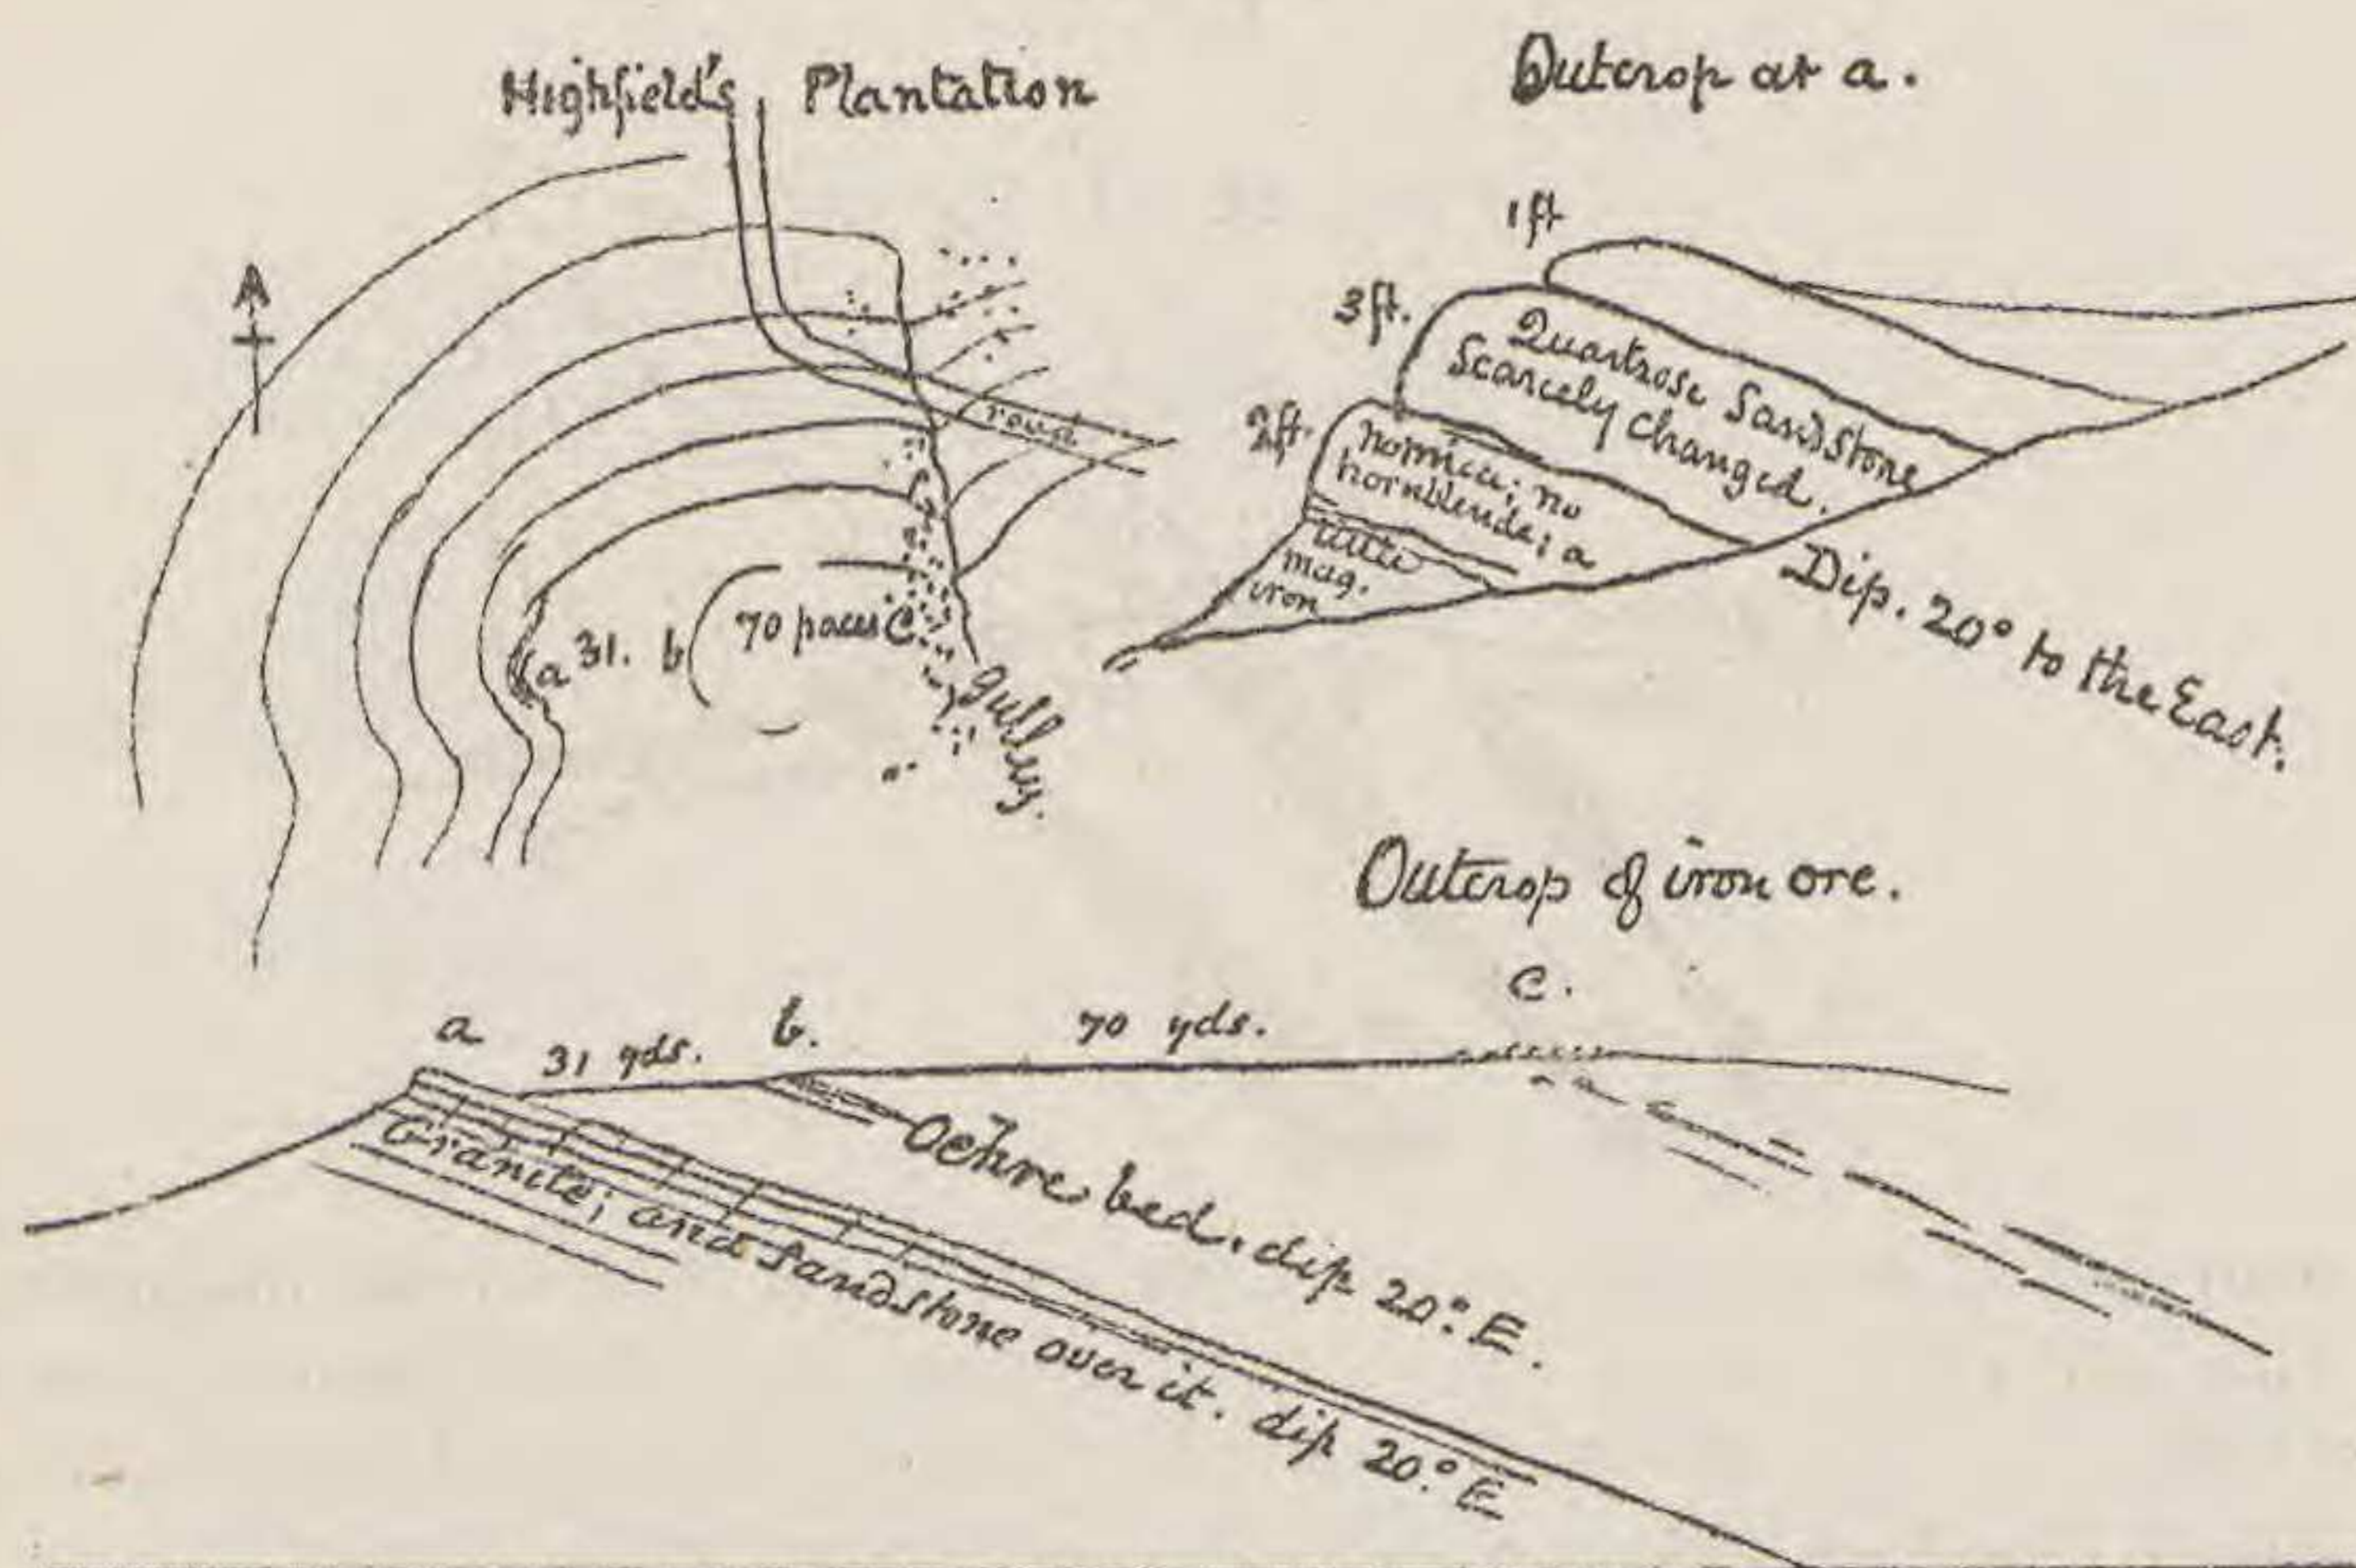 Highfield's Plantation
road
a 31. b 70 paces C
Gulley.
Outcrop at a.
1 ft
3 ft.
Quartzose Sandstone
Scarcely changed.
2 ft.
no mica; no
hornblende; a
little
mag.
iron
Dip. 20° to the East.
Outcrop of iron ore.
C.
a 31 yds. b. 70 yds.
Ochre bed. dip 20.° E.
Granite; and Sandstone over it. dip 20.° E